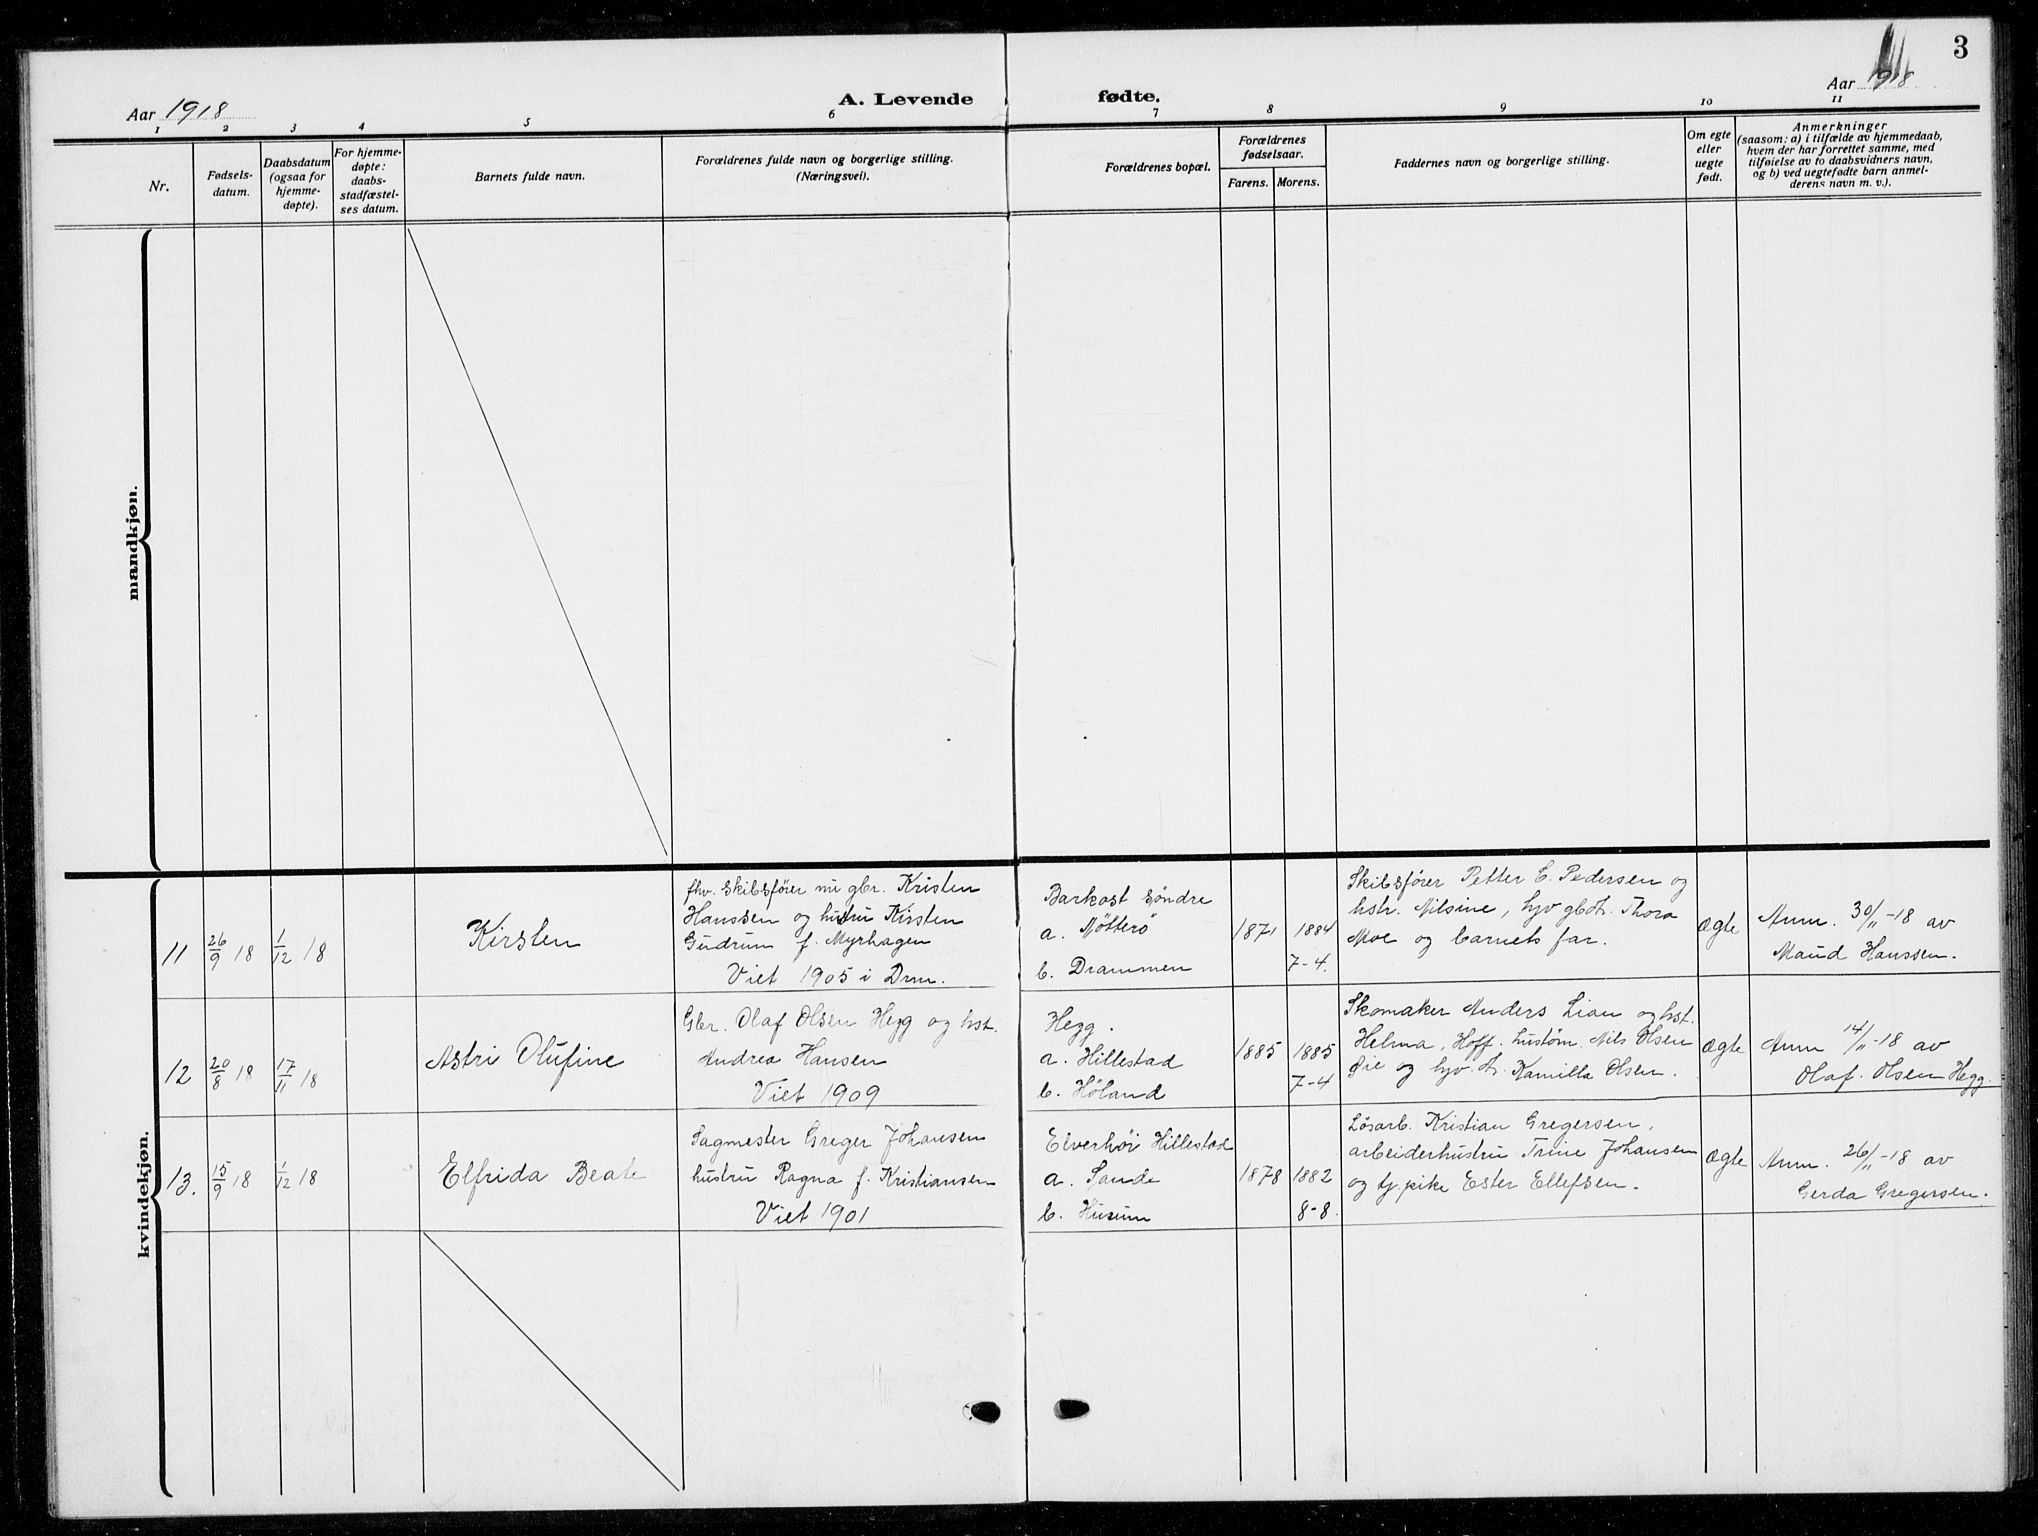 3
Aar 1918
A. Levende fødte.
Aar 1918
1 2 3 4 5 6 7 8 9 10 11
Nr.
Fødsels-
datum.
Daabsdatum
(ogsaa for
hjemme-
døpte).
For hjemme-
døpte:
daabs-
stadfæstel-
ses datum.
Barnets fulde navn.
Forældrenes fulde navn og borgerlige stilling.
(Næringsvei).
Forældrenes bopæl.
Forældrenes
fødselsaar.
Farens. Morens.
Faddernes navn og borgerlige stilling.
Om egte
eller
uegte
født.
Anmerkninger
(saasom: a) i tilfælde av hjemmedaab,
hvem der har forrettet samme, med
tilføielse av to daabsvidners navn,
og b) ved uegtefødte barn anmel-
derens navn m. v.).
mandkjøn.
kvindekjøn.
11
26/9 18
1/12 18
Kirsten
fhv. skibsfører nu gbr. Kristen
Hanssen og hustru Kirsten
Gudrum f. Myrhagen
Viet 1905 i Drm.
Barkost søndre
a. Nøtterö
b. Drammen
1871
1884
7-4.
Skibsfører Petter C. Pedersen og
hstr. Nilsine, hjv gbdt. Thora
Moe og barnets far.
Ægte
Anm. 30/11-18 av
Maud Hanssen.
12
20/8 18
17/11 18
Astri Olufine
Gbr. Olaf Olsen Hegg og hst.
Andrea Hansen
Viet 1909
Hegg.
a. Hillestad
b. Höland
1885
1885
7-4
Skomaker Anders Lian og hst.
Helma, Hoff. Nils Olsen
Øie og hjv. dt. Kamilla Olsen.
Ægte
Anm 14/11-18 av
Olaf. Olsen Hegg.
13.
15/9 18
1/12 18
Elfrida Beate
Sagmester Greger Johansen
hustru Ragna f. Kristiansen
Viet 1901
Elverhöi Hillestad
a. Sande
b. Husum
1878
1882
8-8.
Løsarb. Kristian Gregersen,
arbeiderhustru Trine Johansen
og tj. pike Ester Ellefsen.
Ægte
Anm. 26/11-18 av
Gerda Gregersen.